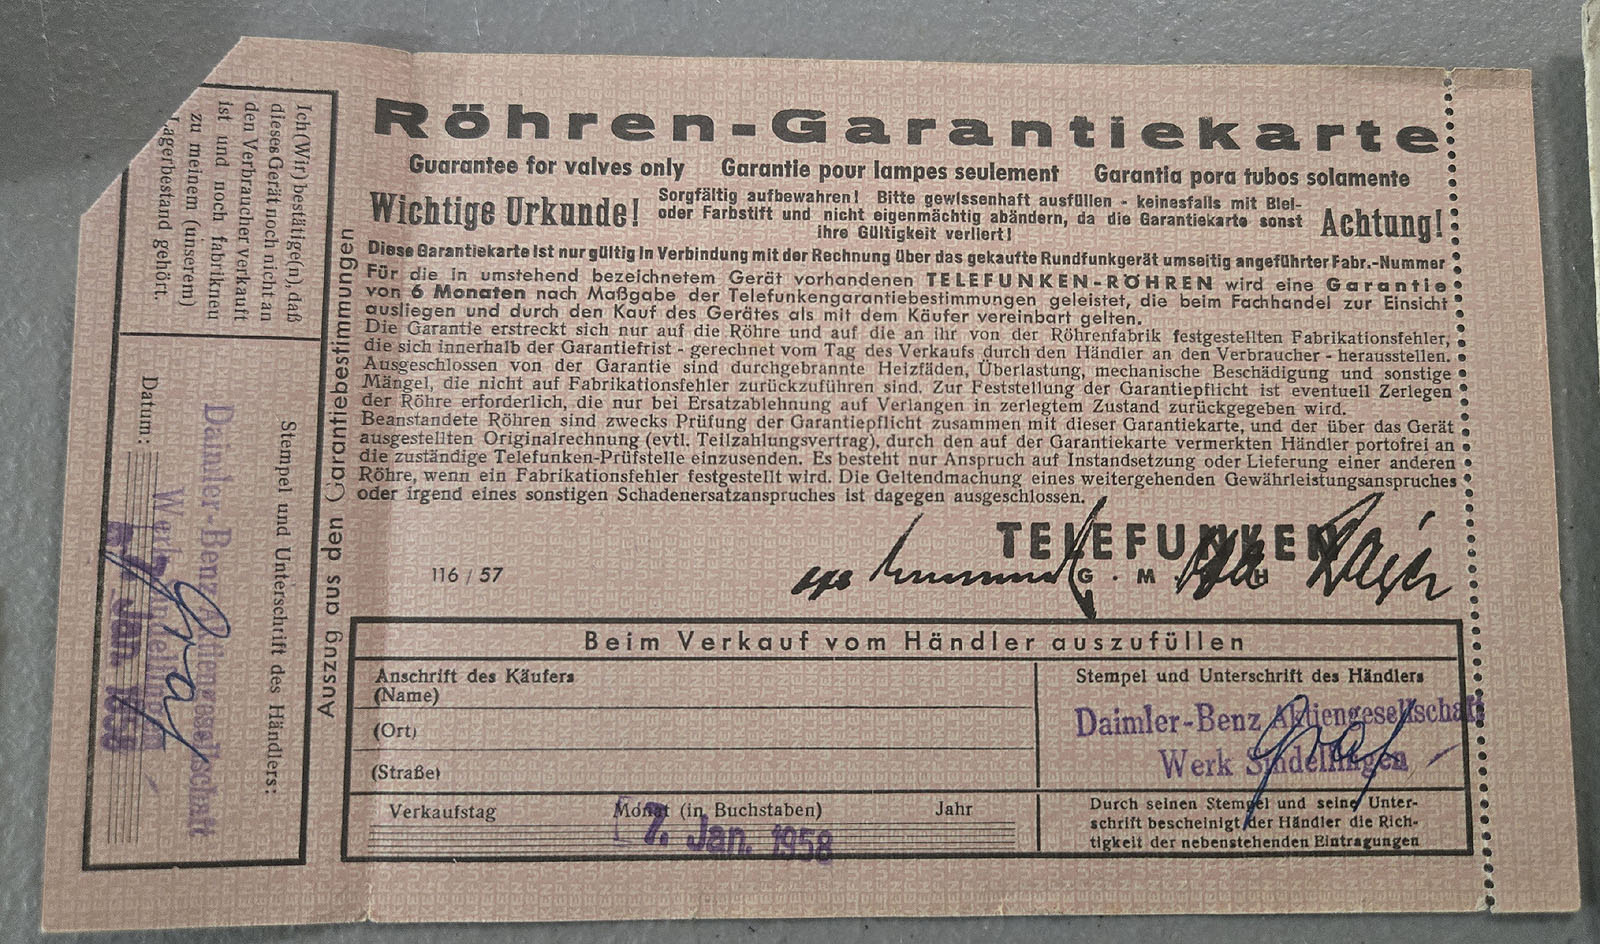 Röhren-Garantiekarte
Guarantee for valves only Garantie pour lampes seulement Garantia pora tubos solamente
Wichtige Urkunde!
Sorgfältig aufbewahren! Bitte gewissenhaft ausfüllen - keinesfalls mit Blei-
oder Farbstift und nicht eigenmächtig abändern, da die Garantiekarte sonst
ihre Gültigkeit verliert!
Achtung!
Diese Garantiekarte ist nur gültig in Verbindung mit der Rechnung über das gekaufte Rundfunkgerät umseitig angeführter Fabr.-Nummer
Für die in umstehend bezeichnetem Gerät vorhandenen TELEFUNKEN-RÖHREN wird eine Garantie
von 6 Monaten nach Maßgabe der Telefunkengarantiebestimmungen geleistet, die beim Fachhandel zur Einsicht
ausliegen und durch den Kauf des Gerätes als mit dem Käufer vereinbart gelten.
Die Garantie erstreckt sich nur auf die Röhre und auf die an ihr von der Röhrenfabrik festgestellten Fabrikationsfehler,
die sich innerhalb der Garantiefrist - gerechnet vom Tag des Verkaufs durch den Händler an den Verbraucher - herausstellen.
Ausgeschlossen von der Garantie sind durchgebrannte Heizfäden, Überlastung, mechanische Beschädigung und sonstige
Mängel, die nicht auf Fabrikationsfehler zurückzuführen sind. Zur Feststellung der Garantiepflicht ist eventuell Zerlegen
der Röhre erforderlich, die nur bei Ersatzablehnung auf Verlangen in zerlegtem Zustand zurückgegeben wird.
Beanstandete Röhren sind zwecks Prüfung der Garantiepflicht zusammen mit dieser Garantiekarte, und der über das Gerät
ausgestellten Originalrechnung (evtl. Teilzahlungsvertrag), durch den auf der Garantiekarte vermerkten Händler portofrei an
die zuständige Telefunken-Prüfstelle einzusenden. Es besteht nur Anspruch auf Instandsetzung oder Lieferung einer anderen
Röhre, wenn ein Fabrikationsfehler festgestellt wird. Die Geltendmachung eines weitergehenden Gewährleistungsanspruches
oder irgend eines sonstigen Schadenersatzanspruches ist dagegen ausgeschlossen.
TELEFUNKEN
G. M. B. H
116 / 57
Beim Verkauf vom Händler auszufüllen
Anschrift des Käufers
(Name)
(Ort)
(Straße)
Stempel und Unterschrift des Händlers
Daimler-Benz Aktiengesellschaft
Werk Sindelfingen
Graf
Verkaufstag Monat (in Buchstaben) Jahr
7. Jan. 1958
Durch seinen Stempel und seine Unter-
schrift bescheinigt der Händler die Rich-
tigkeit der nebenstehenden Eintragungen
Auszug aus den Garantiebestimmungen
Ich (Wir) bestätige(n), daß
dieses Gerät noch nicht an
den Verbraucher verkauft
ist und noch fabrikneu
zu meinem (unserem)
Lagerbestand gehört.
Stempel und Unterschrift des Händlers:
Daimler-Benz Aktiengesellschaft
Werk Sindelfingen
Graf
Datum:
7. Jan. 1958